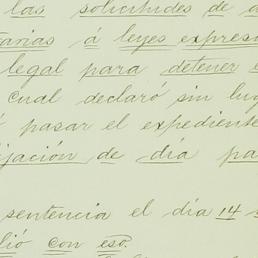 las solicitudes de a
tarias á leyes expresa
legal para detener e
cual declaró sin lug
pasar el expediente
ijación de día pa
sentencia el día 14
lió con eso.